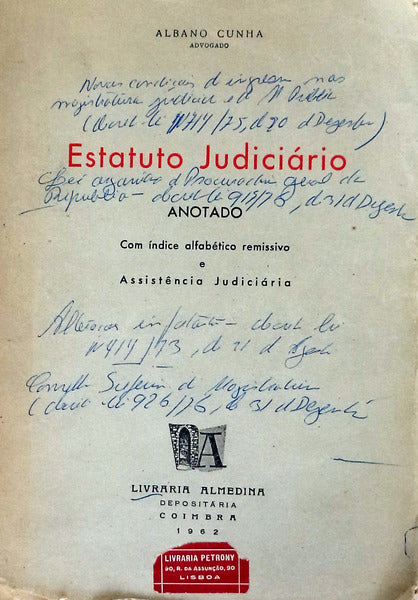 ALBANO CUNHA
ADVOGADO
Novas condições de ingresso nas
magistratura judicial e d M Público
(decreto lei nº 714/75, de 20 d Dezembro)
Estatuto Judiciário
Lei orgânica d Procuradoria geral da
República – decreto lei 917/76, de 31 d Dezembro
ANOTADO
Com índice alfabético remissivo
e
Assistência Judiciária
Alterações – decreto lei
nº 414/73, de 21 d Agosto
Conselho Superior d Magistratura
(decreto lei 926/76, de 31 d Dezembro
LIVRARIA ALMEDINA
DEPOSITÁRIA
COIMBRA
1962
LIVRARIA PETRONY
90, R. DA ASSUNÇÃO, 90
LISBOA